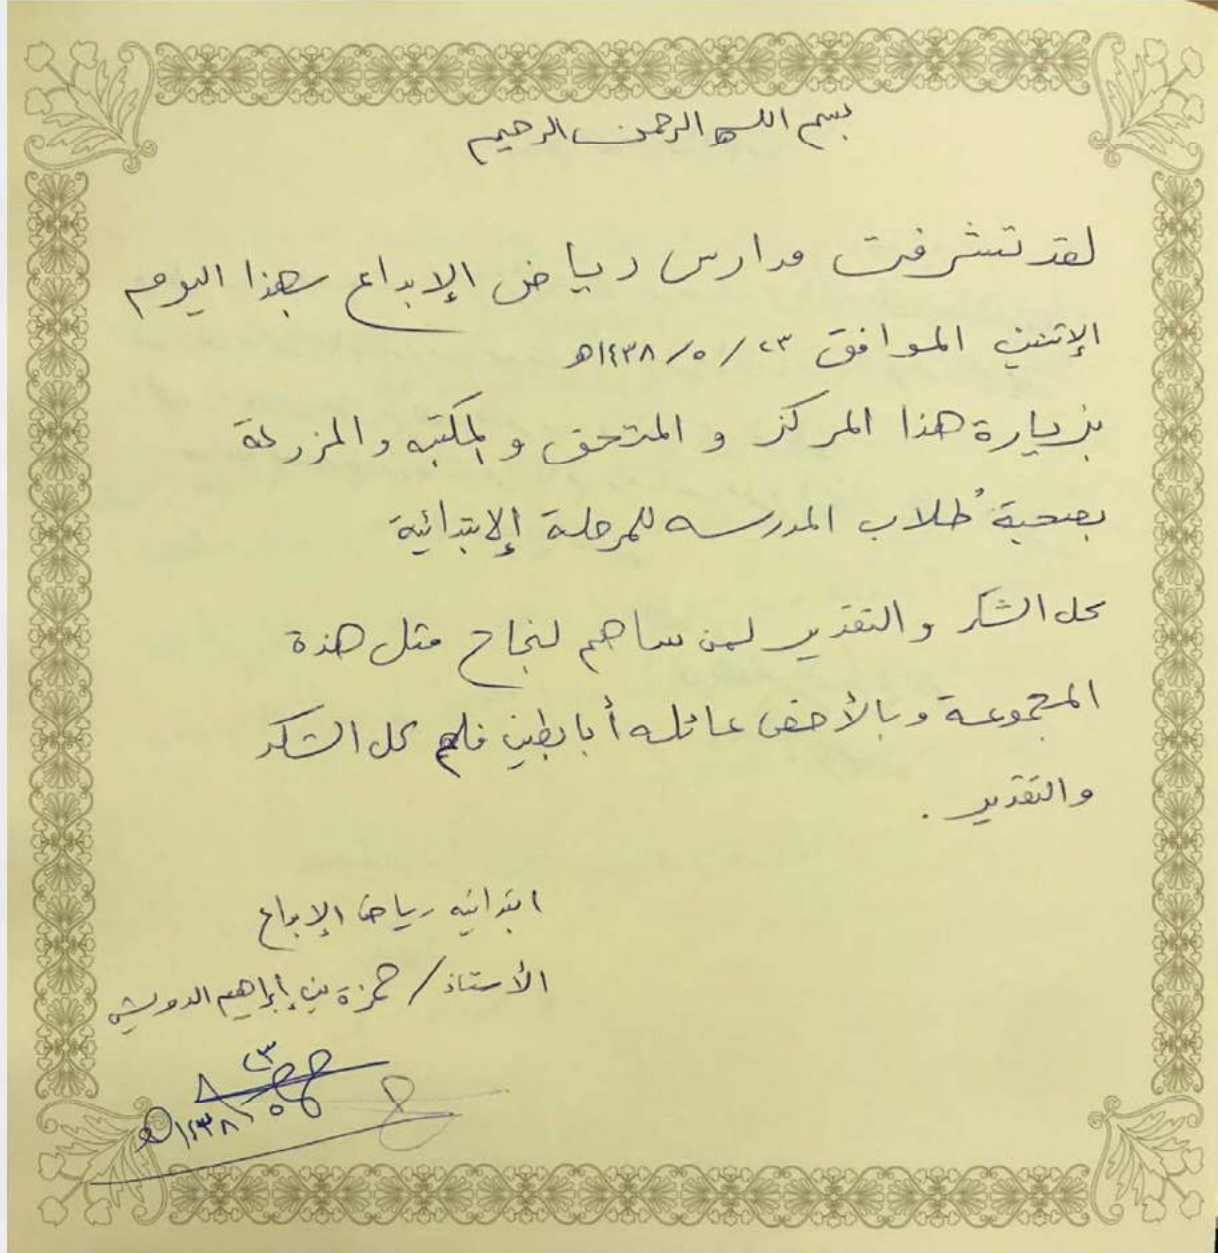 بسم الله الرحمن الرحيم
لقد تشرفت مدارس رياض الإبداع بهذا اليوم
الإثنين الموافق ٢٣ / ٥ / ١٤٣٨هـ
بزيارة هذا المركز و المتحف و المكتبه و المزرعة
بصحبة طلاب المدرسه للمرحلة الإبتدائية
كل الشكر و التقدير لمن ساهم لنجاح مثل هذة
المجموعة وبالأخص عائله أبابطين فلهم كل الشكر
والتقدير .
ابتدائيه رياض الإبداع
الأستاذ / حمزة بن إبراهيم الدويش
٢٣
٥
١٤٣٨هـ